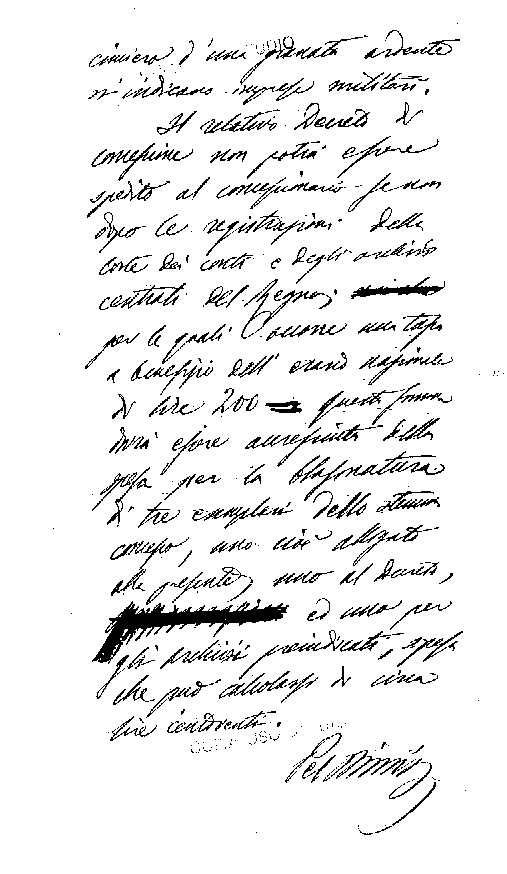 cimiero d'una granata ardente
si indicano imprese militari.
Il relativo Decreto di
concessione non potrà essere
spedito al concessionario se non
dopo le registrazioni della
Corte dei Conti e degli archivi
centrali del Regno,
per le quali occorre una tassa
a beneficio dell'erario nazionale
di lire 200 questa somma
dovrà essere accresciuta della
spesa per la blasonatura
di tre esemplari dello stemma
concesso, uno cioè allegato
alla presente, uno al Decreto,
ed uno per
gli archivi preindicati, spesa
che può calcolarsi di circa
lire centoventi.
Pel Ministro